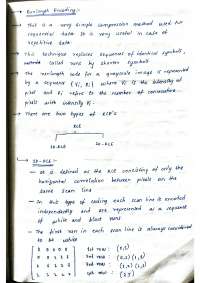 Runlength Encoding :-
→ This is a very simple compression method used for
sequential data. It is very useful in case of
repetitive data.
→ This technique replaces sequences of identical symbols,
called runs by shorter symbols
→ The runlength code for a grayscale image is represented
by a sequence {Vi, Ri} where Vi is the intensity of
pixel and Ri refers to the number of consecutive
pixels with intensity Vi.
→ There are two types of RLE's
RLE
1D-RLE 2D-RLE
→ 1D-RLE :-
- It is defined as the RLE consisting of only the
horizontal correlation between pixels on the
same scan line
- In this type of coding each scan line is encoded
independently and are represented as a sequence
of white and black runs
- The first run in each scan line is always considered
to be white
1st row :
2nd row :
3rd row :